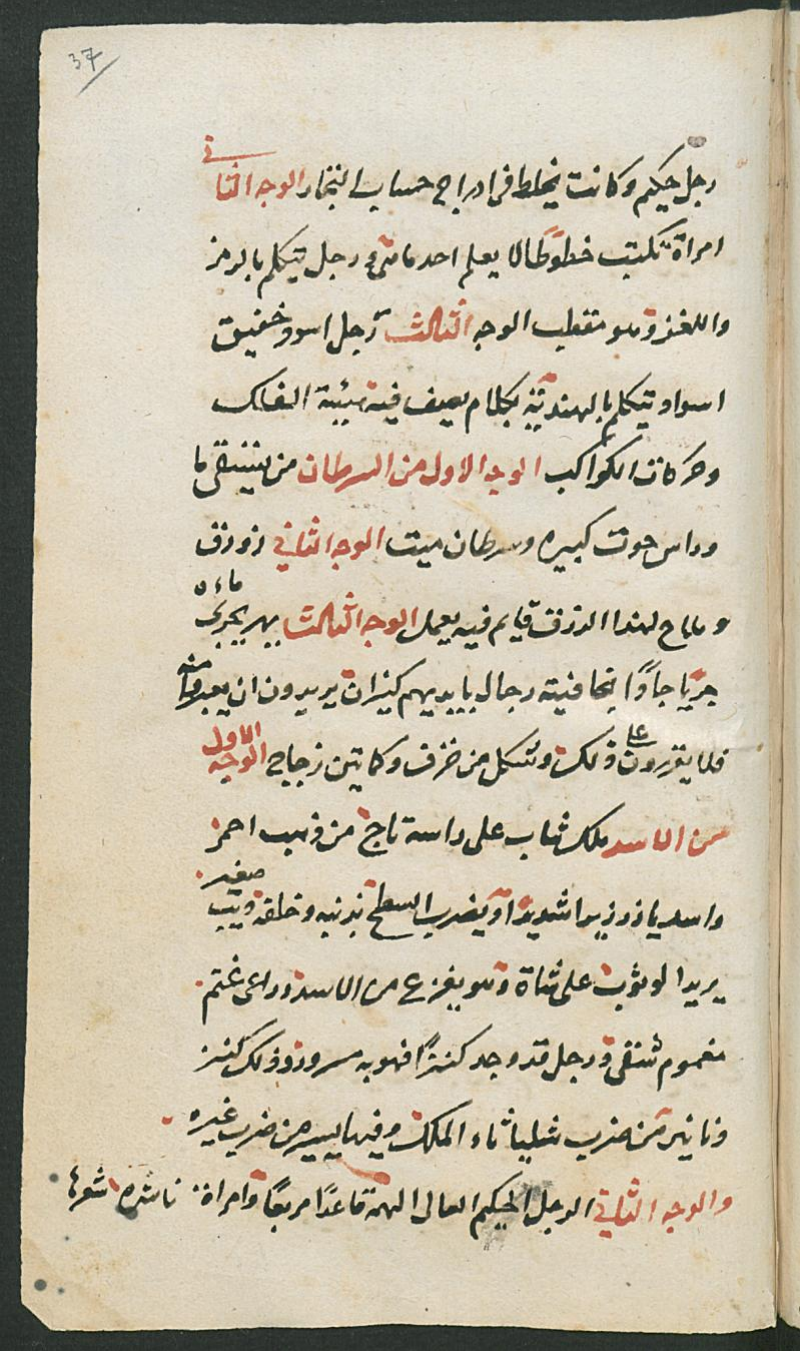 37
رجل حكيم وكانت يخلط في ادراج حساب التجار الوجه الثانى
امراة تكتب خطوطا لا يعلم احد ما هي ورجل يتكلم بالرمز
واللغز وهو مقطب الوجه الثالث رجل اسود خفيق
اسواد يتكلم بالهندية بكلام يصف فيه هيئة الفلك
وحركات الكواكب الوجه الاول من السرطان من يستقى ما
وراس حوت كبيره وسرطان ميت الوجه الثانى زورق
وملاح لهذا الزرق قايم فيه يعمل الوجه الثالث بهر يجرى ماءه
جريا جاوا بحافتيه رجال بايديهم كيزان يريدون ان يعبرو منه
فلا يقدرون على ذلك وشكل من خزف وكاتين زجاج الوجه الاول
من الاسد ملك شاب على راسه تاج من ذهب احمر
واسد يازر زيرا شديدا ويضرب السطح بذنبه وخلفه ذيب صغير
يريد الوثوب على شاة وهو يفزع من الاسد وراعى غنم
مغموم شقى ورجل قد وجد كنزا فهو به مسرور وذلك كنز
دنانير من ضرب الملك وفيها يسير من ضرب غيره
والوجه الثانى الرجل الحكيم العالى الهمة قاعدا مربعا وامراة ناشره شعرها